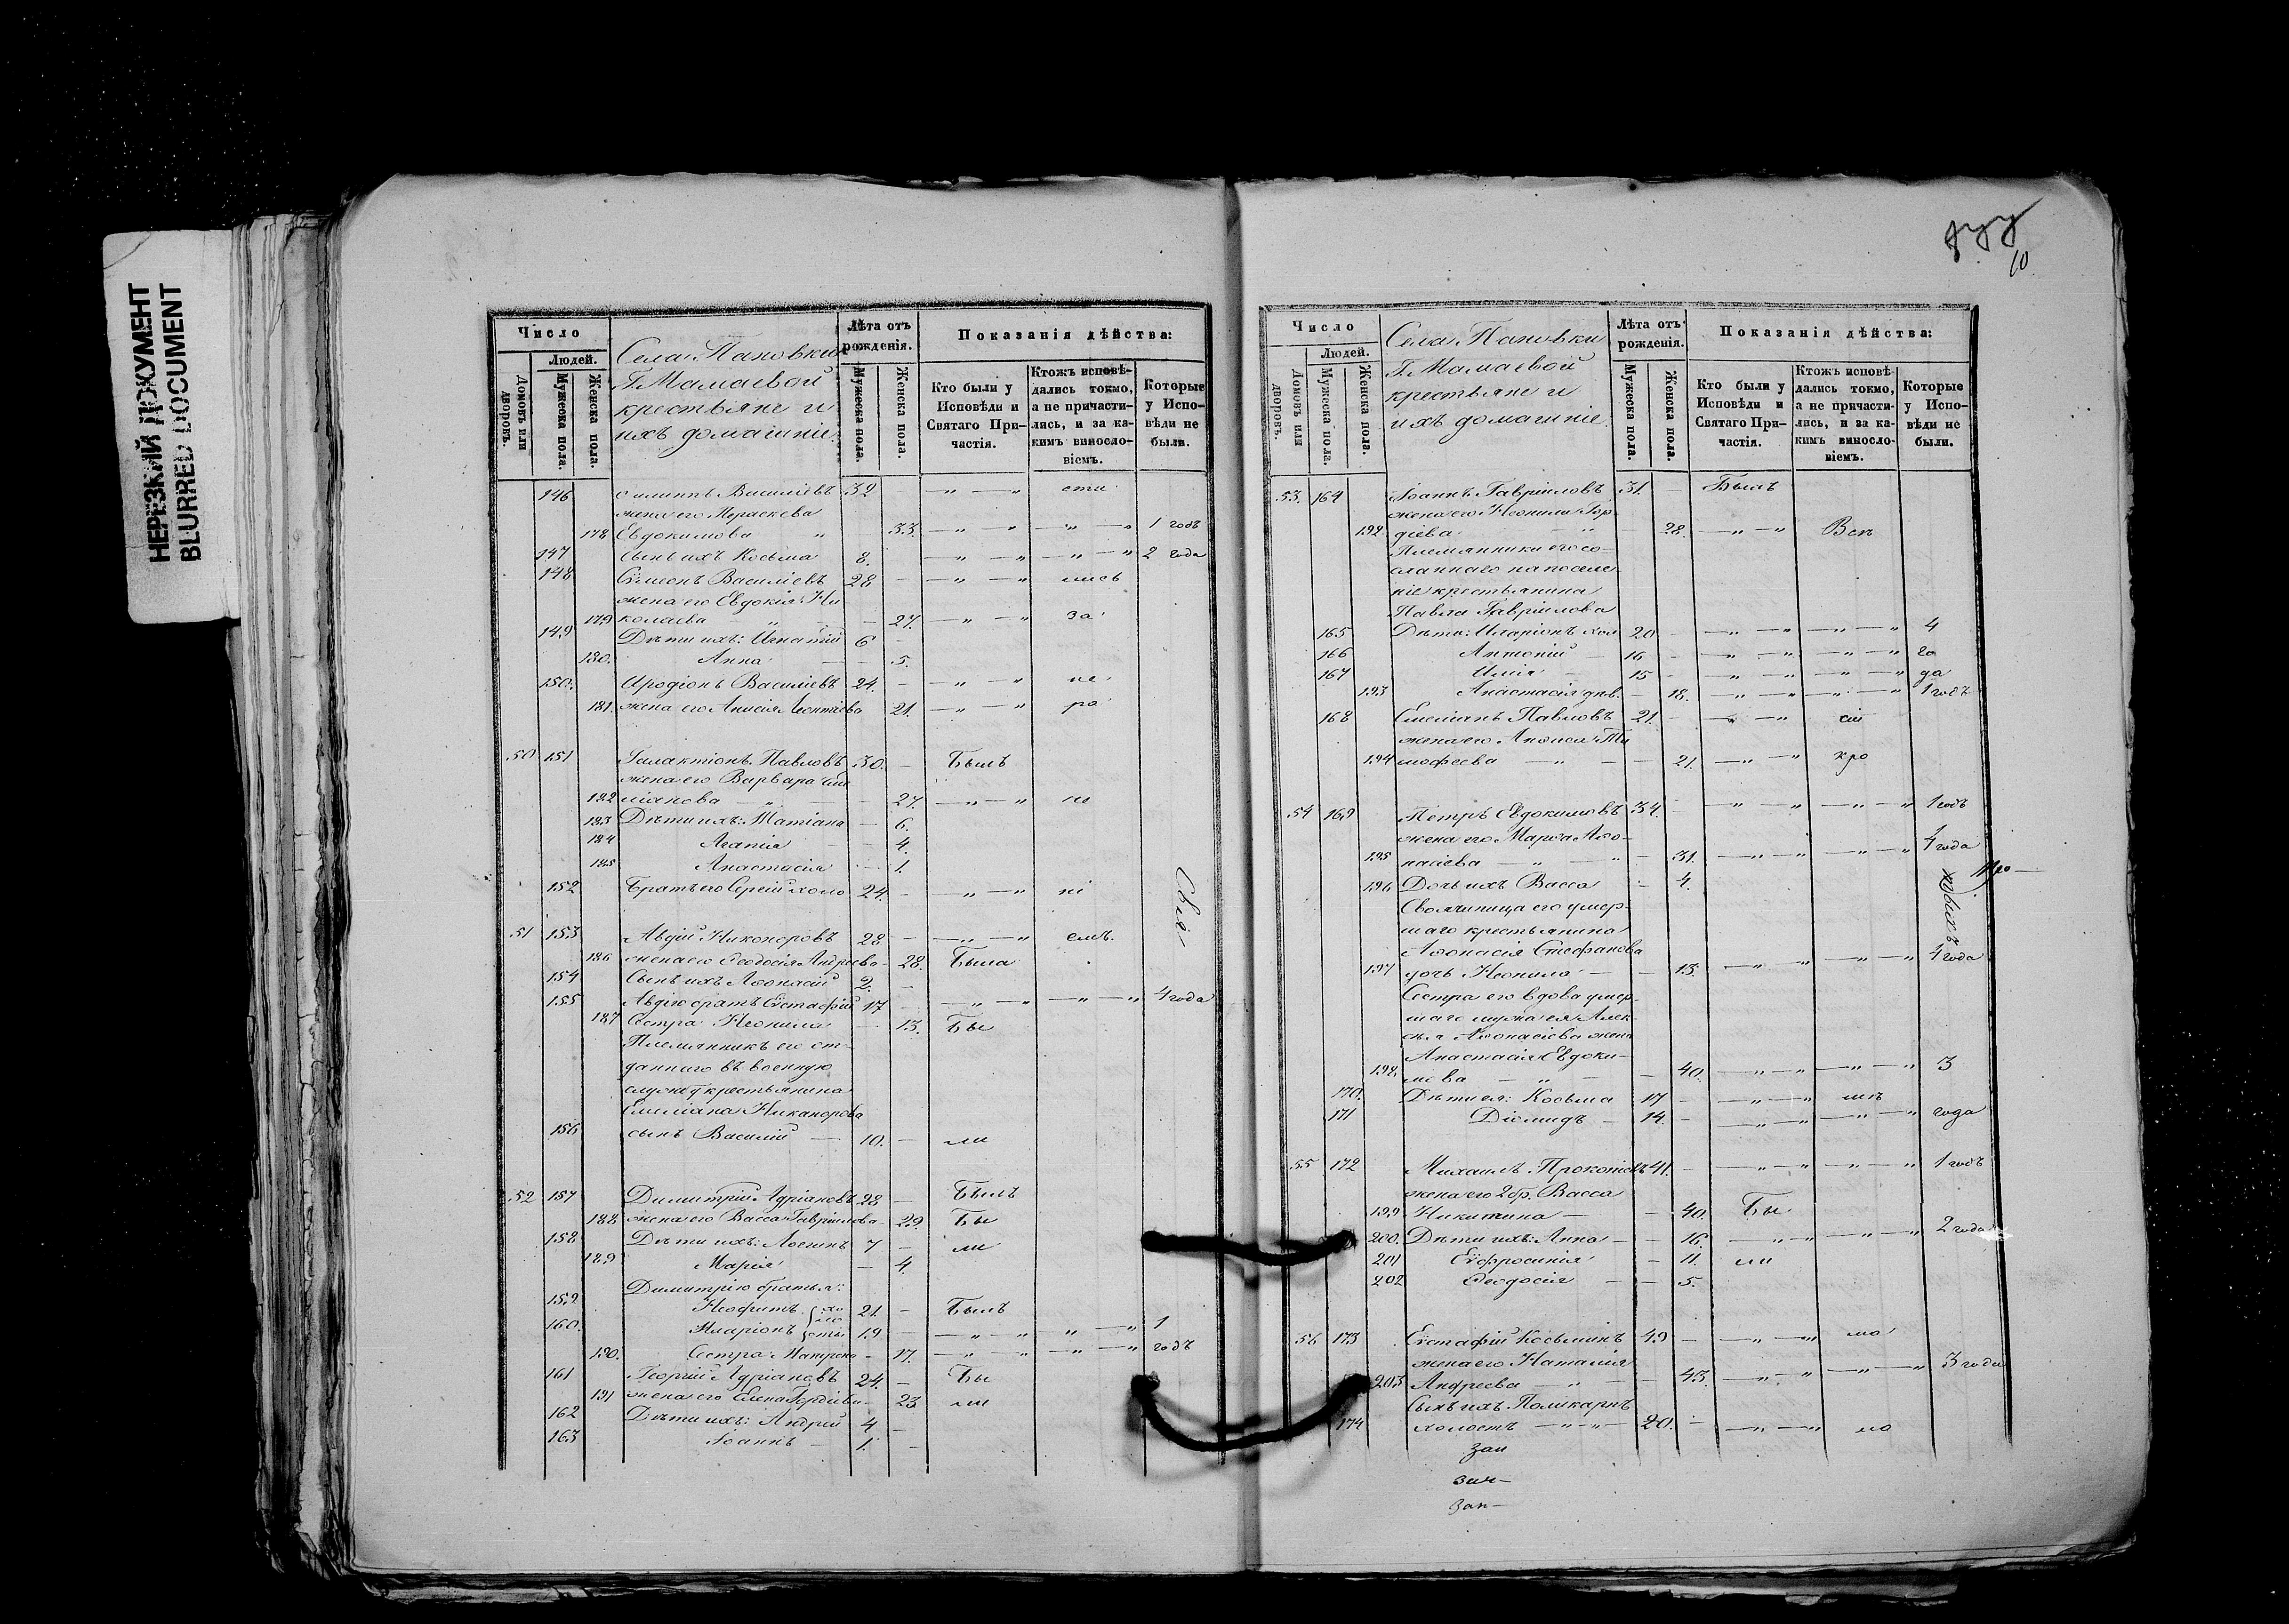 НЕРЕЗКИЙ ДОКУМЕНТ
BLURRED DOCUMENT
Число
Людей.
Домовъ или дворовъ.
Мужеска пола.
Женска пола.
Села Пановки
Г. Мамаевой
крестьяне и
ихъ домашніе
Лѣта отъ рожденія.
Мужеска пола.
Женска пола.
Показанія дѣйства:
Кто были у Исповѣди и Святаго Причастія.
Ктожъ исповѣдались токмо, а не причастились, и за какимъ винословіемъ.
Которые у Исповѣди не были.
146 Филиппъ Василіевъ 32 — „ — „ сти
жена его Параскева
178 Евдокимова „ 33. — „ — „ — „ — „ 1 годъ
147 Сынъ ихъ Косьма 8. „ — „ — „ — „ 2 года
148 Сѵмеонъ Василіевъ 28 — — „ — „ лись
жена его Евдокія Ни
179 колаева „ — 27. — „ — „ за
149 Дѣти ихъ: Игнатій 6 —
180. Анна — — 5.
150. Иродіонъ Василіевъ 24. — — „ — „ не
181. жена его Анисія Леонтіева 21. — „ — „ ра
50 151 Галактіонъ Павловъ 30. — Былъ
жена его Варвара Еми
182 ліанова — „ — — 27. — „ — „ не
183 Дѣти ихъ: Татіана — 6.
184 Агапія — — 4.
185 Анастасія — 1.
152 Братъ его Сергій холо 24. — — „ — „ ні
51 153 Авдій Никаноровъ 28. — — „ — „ емъ.
186 жена его Ѳеодосія Андреева — 28. Была
154 Сынъ ихъ Аѳонасій 2. —
155 Авдію братъ Евстафій 17 — — „ — „ — „ — „ 4 года
187 Сестра Неонила — 13. Бы
Племянникъ его от-
даннаго въ военную
службу крестьянина
Емиліана Никанорова
156 сынъ Василій — 10. — ли
52 157 Димитрій Адріановъ 28 — Былъ
188 жена его Васса Гавріилова — 29. Бы
158 Дѣти ихъ: Логинъ 7 — ли
189 Марія — 4.
Димитрію братья:
159 Неофитъ хо 21. — Былъ
160. Иларіонъ сты 19 — — „ — „ „ — „ 1
190. Сестра Матрона — 17. — „ — „ — „ — „ годъ
161 Георгій Адріановъ 24. — Бы
191 жена его Елена Гордіева — 23 ли
162 Дѣти ихъ: Андрей 4 —
163 Іоаннъ — 1. —
Свія
10
Число
Людей.
Домовъ или дворовъ.
Мужеска пола.
Женска пола.
Села Пановки
Г. Мамаевой
крестьяне и
ихъ домашніе
Лѣта отъ рожденія.
Мужеска пола.
Женска пола.
Показанія дѣйства:
Кто были у Исповѣди и Святаго Причастія.
Ктожъ исповѣдались токмо, а не причастились, и за какимъ винословіемъ.
Которые у Исповѣди не были.
53. 164 Іоаннъ Гавріиловъ 31. — Былъ
жена его Неонила Гор-
192 діева — 28. — „ — „ Всѣ
Племянники его со-
сланнаго на поселе-
ніе крестьянина
Павла Гавріилова
165 Дѣти: Иларіонъ хол 20 — — „ — „ — „ — „ 4
166 Антоній — 16 — — „ — „ — „ — „ го
167 Илія — 15 — — „ — „ — „ — „ да
193 Анастасія дѣв. — 18. — „ — „ — „ — „ 1 годъ
168 Емеліанъ Павловъ 21. — — „ — „ сіи
жена его Анфиса Ти
194 мофеева — „ — — 21. — „ — „ кро
54 169 Петръ Евдокимовъ 34. — — „ — „ — „ — „ 1 годъ
жена его Марѳа Аѳо-
195 насіева — „ — „ — 31. — „ — „ — „ — „ 4 года
196 Дочь ихъ Васса — 4.
Своячиница его умер-
шаго крестьянина
Аѳонасія Стефанова
197 дочь Неонила — — 13. — „ — „ — „ — „ 4 года
Сестра его вдова умер-
шаго мужа ея Алек-
сѣя Аѳонасіева жена
Анастасія Евдоки-
198. мова — „ — — 40. — „ — „ — „ — „ 3
170. Дѣти ея: Косьма 17 — — „ — „ мѣ
171 Діомидъ — 14. — — „ — „ — „ — „ года
55 172 Михаилъ Прокопіевъ 41. — — „ — „ — „ — „ 1 годъ
жена его 2 бр. Васса
199 Никитина — — 40. Бы
200. Дѣти ихъ: Анна — — 16. — „ — „ — „ — „ 2 года
201 Евфросинія — 11. ли
202 Ѳеодосія — — 5.
56 173 Евстафій Косьминъ 49 — — „ — „ ма
жена его Наталія
203 Андреева — „ — — 43. — „ — „ — „ — „ 3 года
Сынъ ихъ Поликарпъ
174 холостъ — „ — „ — 20. — — „ — „ ло